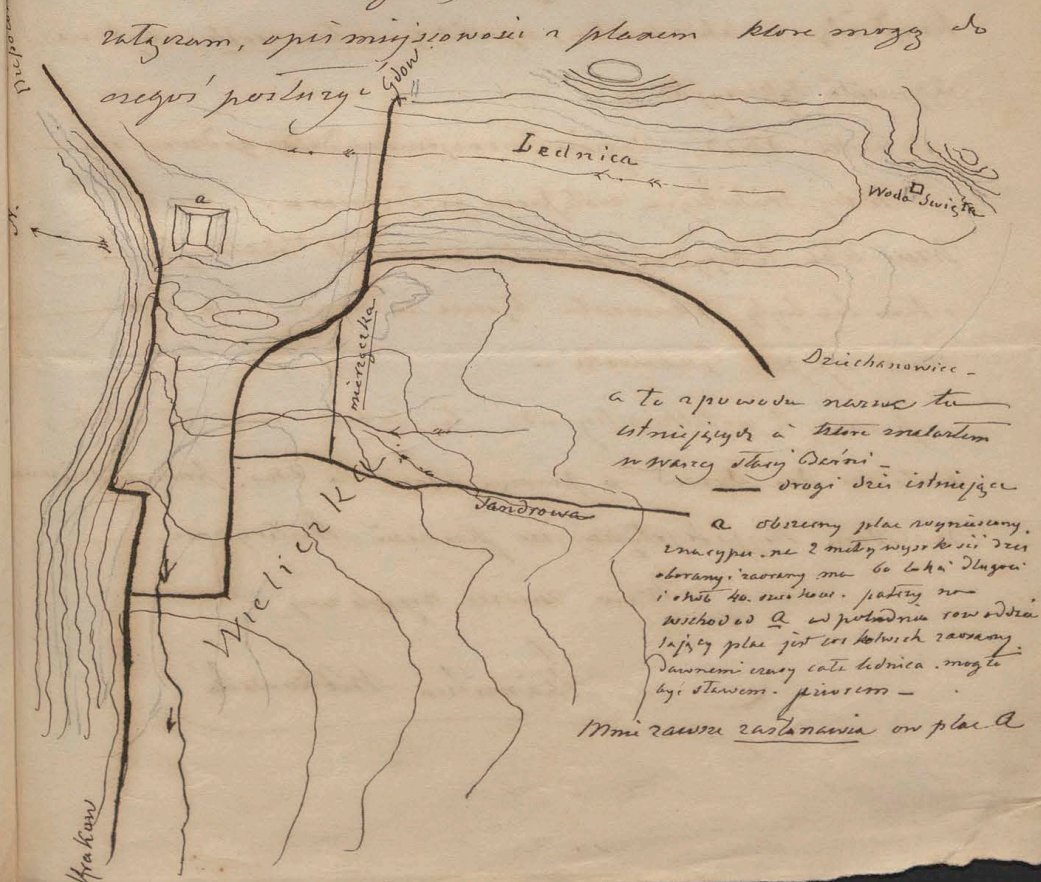 załączam, opis miejscowości z planem które mogą do
czegoś posłużyć
Gdow
Lednica
Woda Święta
a
N.
mierzączka
Dziekanowice -
a to z powodu nazwę tu
istniejących a które znalazłem
w waszej starej Baśni -
— drogi dziś istniejące
Sandrowa
Wieliczka
a obszerny plac wyniesiony,
znasypu na 2 metry wysokości dziś
oborany i zaorany ma 60 łokci długości
i około 40. szerokośc. patrzy na
wschód od a od południa rów oddzie
lający plac jest cos kolwiek zaorany.
dawnemi czasy cała lednica mogła
być stawem.
Mnie zawsze zastanawia ów plac A
Krakow